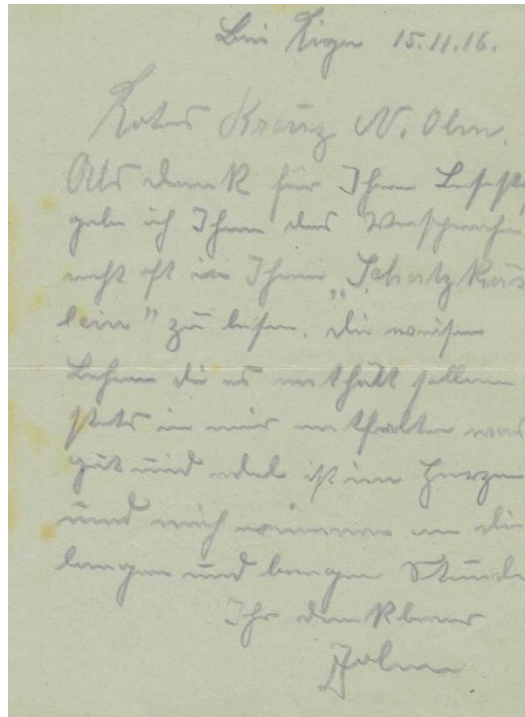 Bei Riga 15.11.16.
Rotes Kreuz N. Olm.
Als Dank für Ihren Lesestoff
gebe ich Ihnen das Versprechen
recht oft in Ihrem „Schatzkäs
lein" zu lesen. Die weisen
Lehren die es enthält sollen
stets in mir entfalten was
gut und edel ist im Herzen
und mich erinnern an die
langen und bangen Stunden
Ihr dankbarer